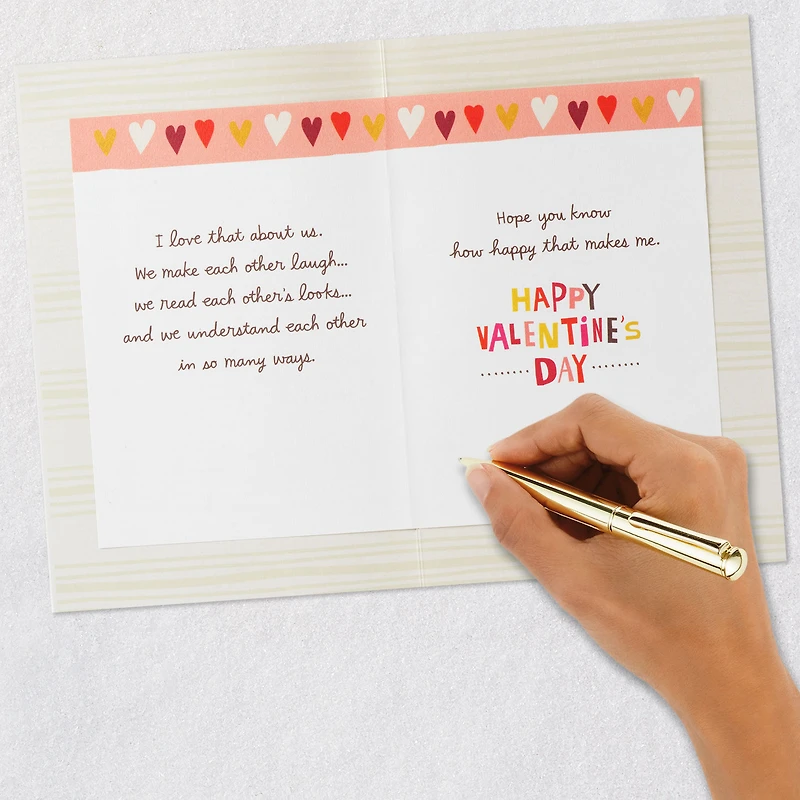 I love that about us.
We make each other laugh...
we read each other's looks...
and we understand each other
in so many ways.
Hope you know
how happy that makes me.
HAPPY
VALENTiNE'S
DAY